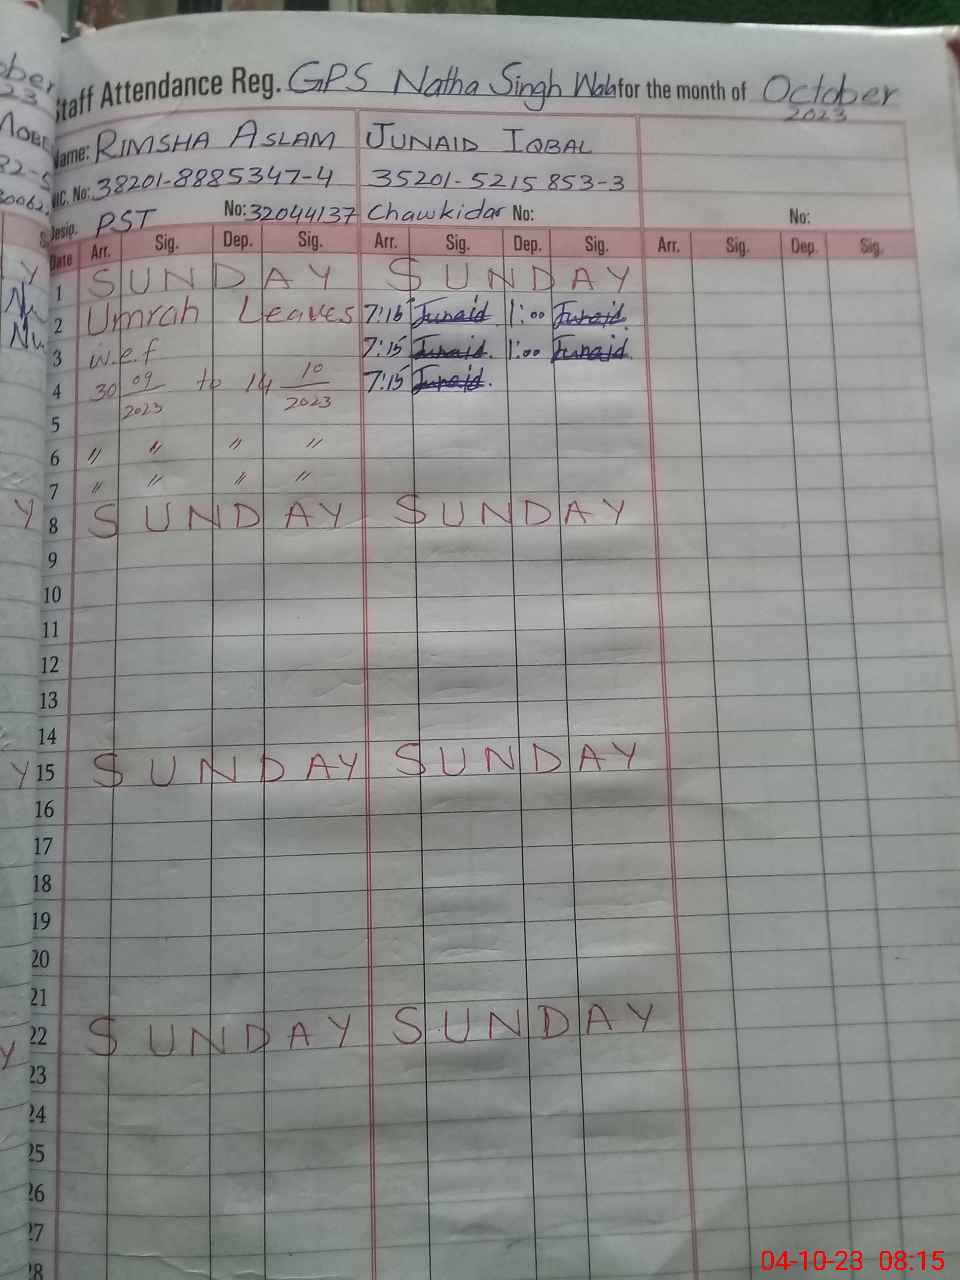 Staff Attendance Reg. GPS Natha Singh Wala for the month of October 2023
Name: RIMSHA ASLAM JUNAID IQBAL
NIC. No: 38201-8885347-4 35201-5215853-3
Desig. PST No: 32044137 Chawkidar No: No:
Date Arr. Sig. Dep. Sig. Arr. Sig. Dep. Sig. Arr. Sig. Dep. Sig.
1 SUNDAY SUNDAY
2 Umrah Leaves 7:15 Junaid 1:00 Junaid
3 w.e.f 7:15 Junaid 1:00 Junaid
4 30 09/2023 to 14 10/2023 7:15 Junaid
5
6 〃 〃 〃 〃
7 〃 〃 〃 〃
Y 8 SUNDAY SUNDAY
9
10
11
12
13
14
Y 15 SUNDAY SUNDAY
16
17
18
19
20
21
Y 22 SUNDAY SUNDAY
23
24
25
26
27
28
04-10-23 08:15